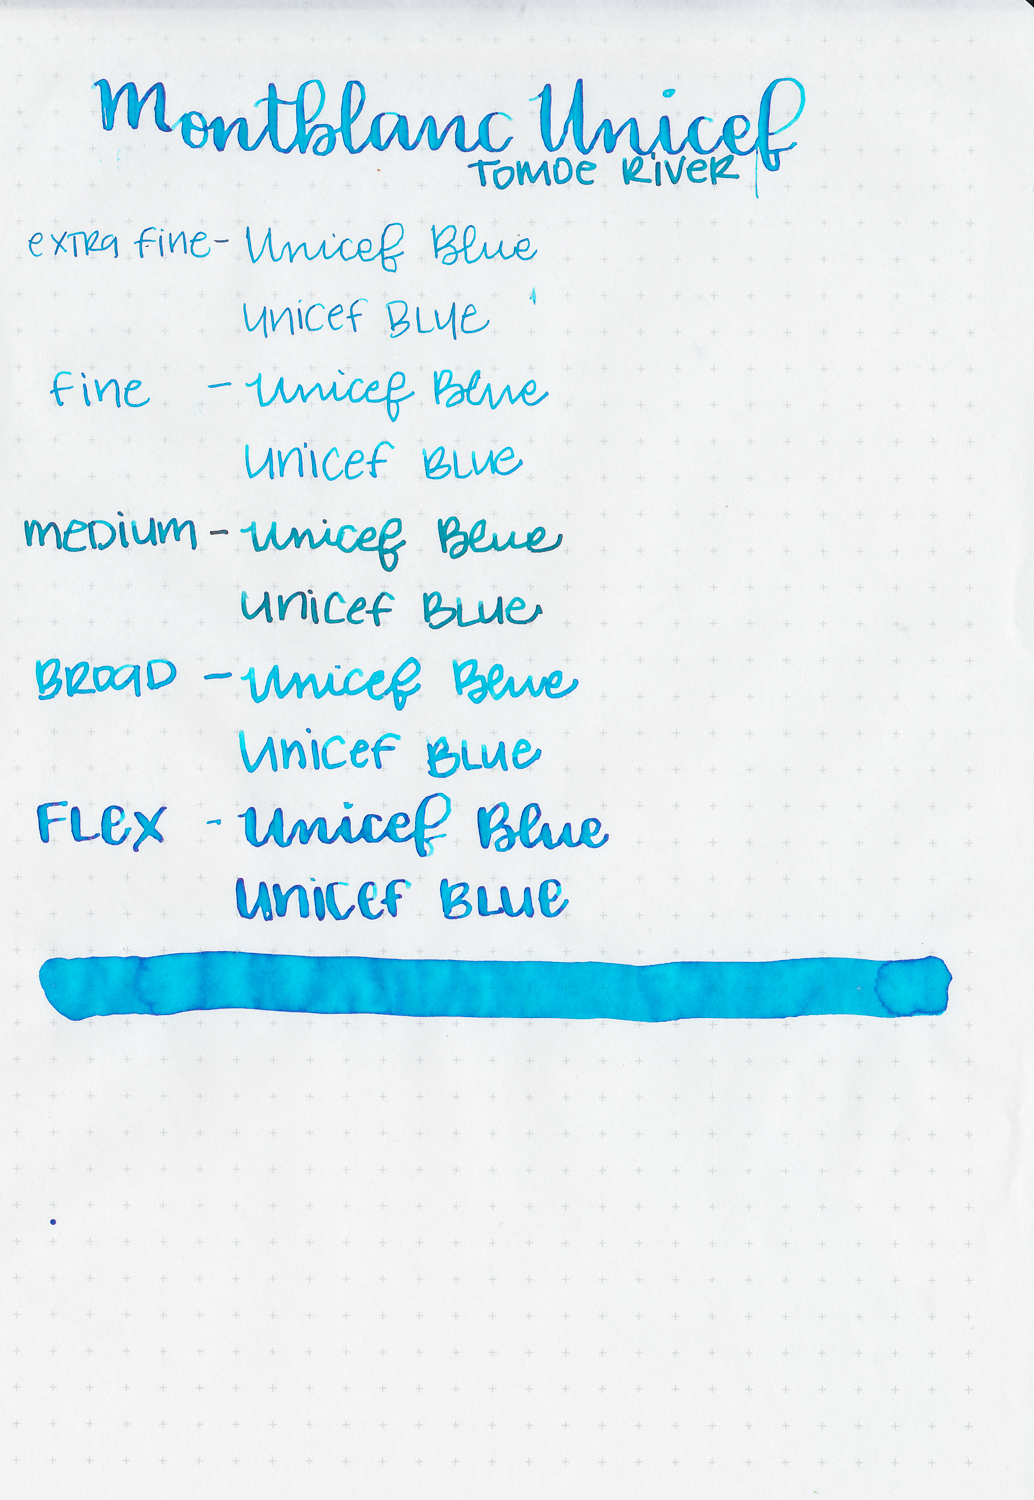 Montblanc Unicef
Tomoe River
extra fine - Unicef Blue
Unicef Blue
fine - Unicef Blue
Unicef Blue
medium - Unicef Blue
Unicef Blue
Broad - Unicef Blue
Unicef Blue
Flex - Unicef Blue
Unicef Blue